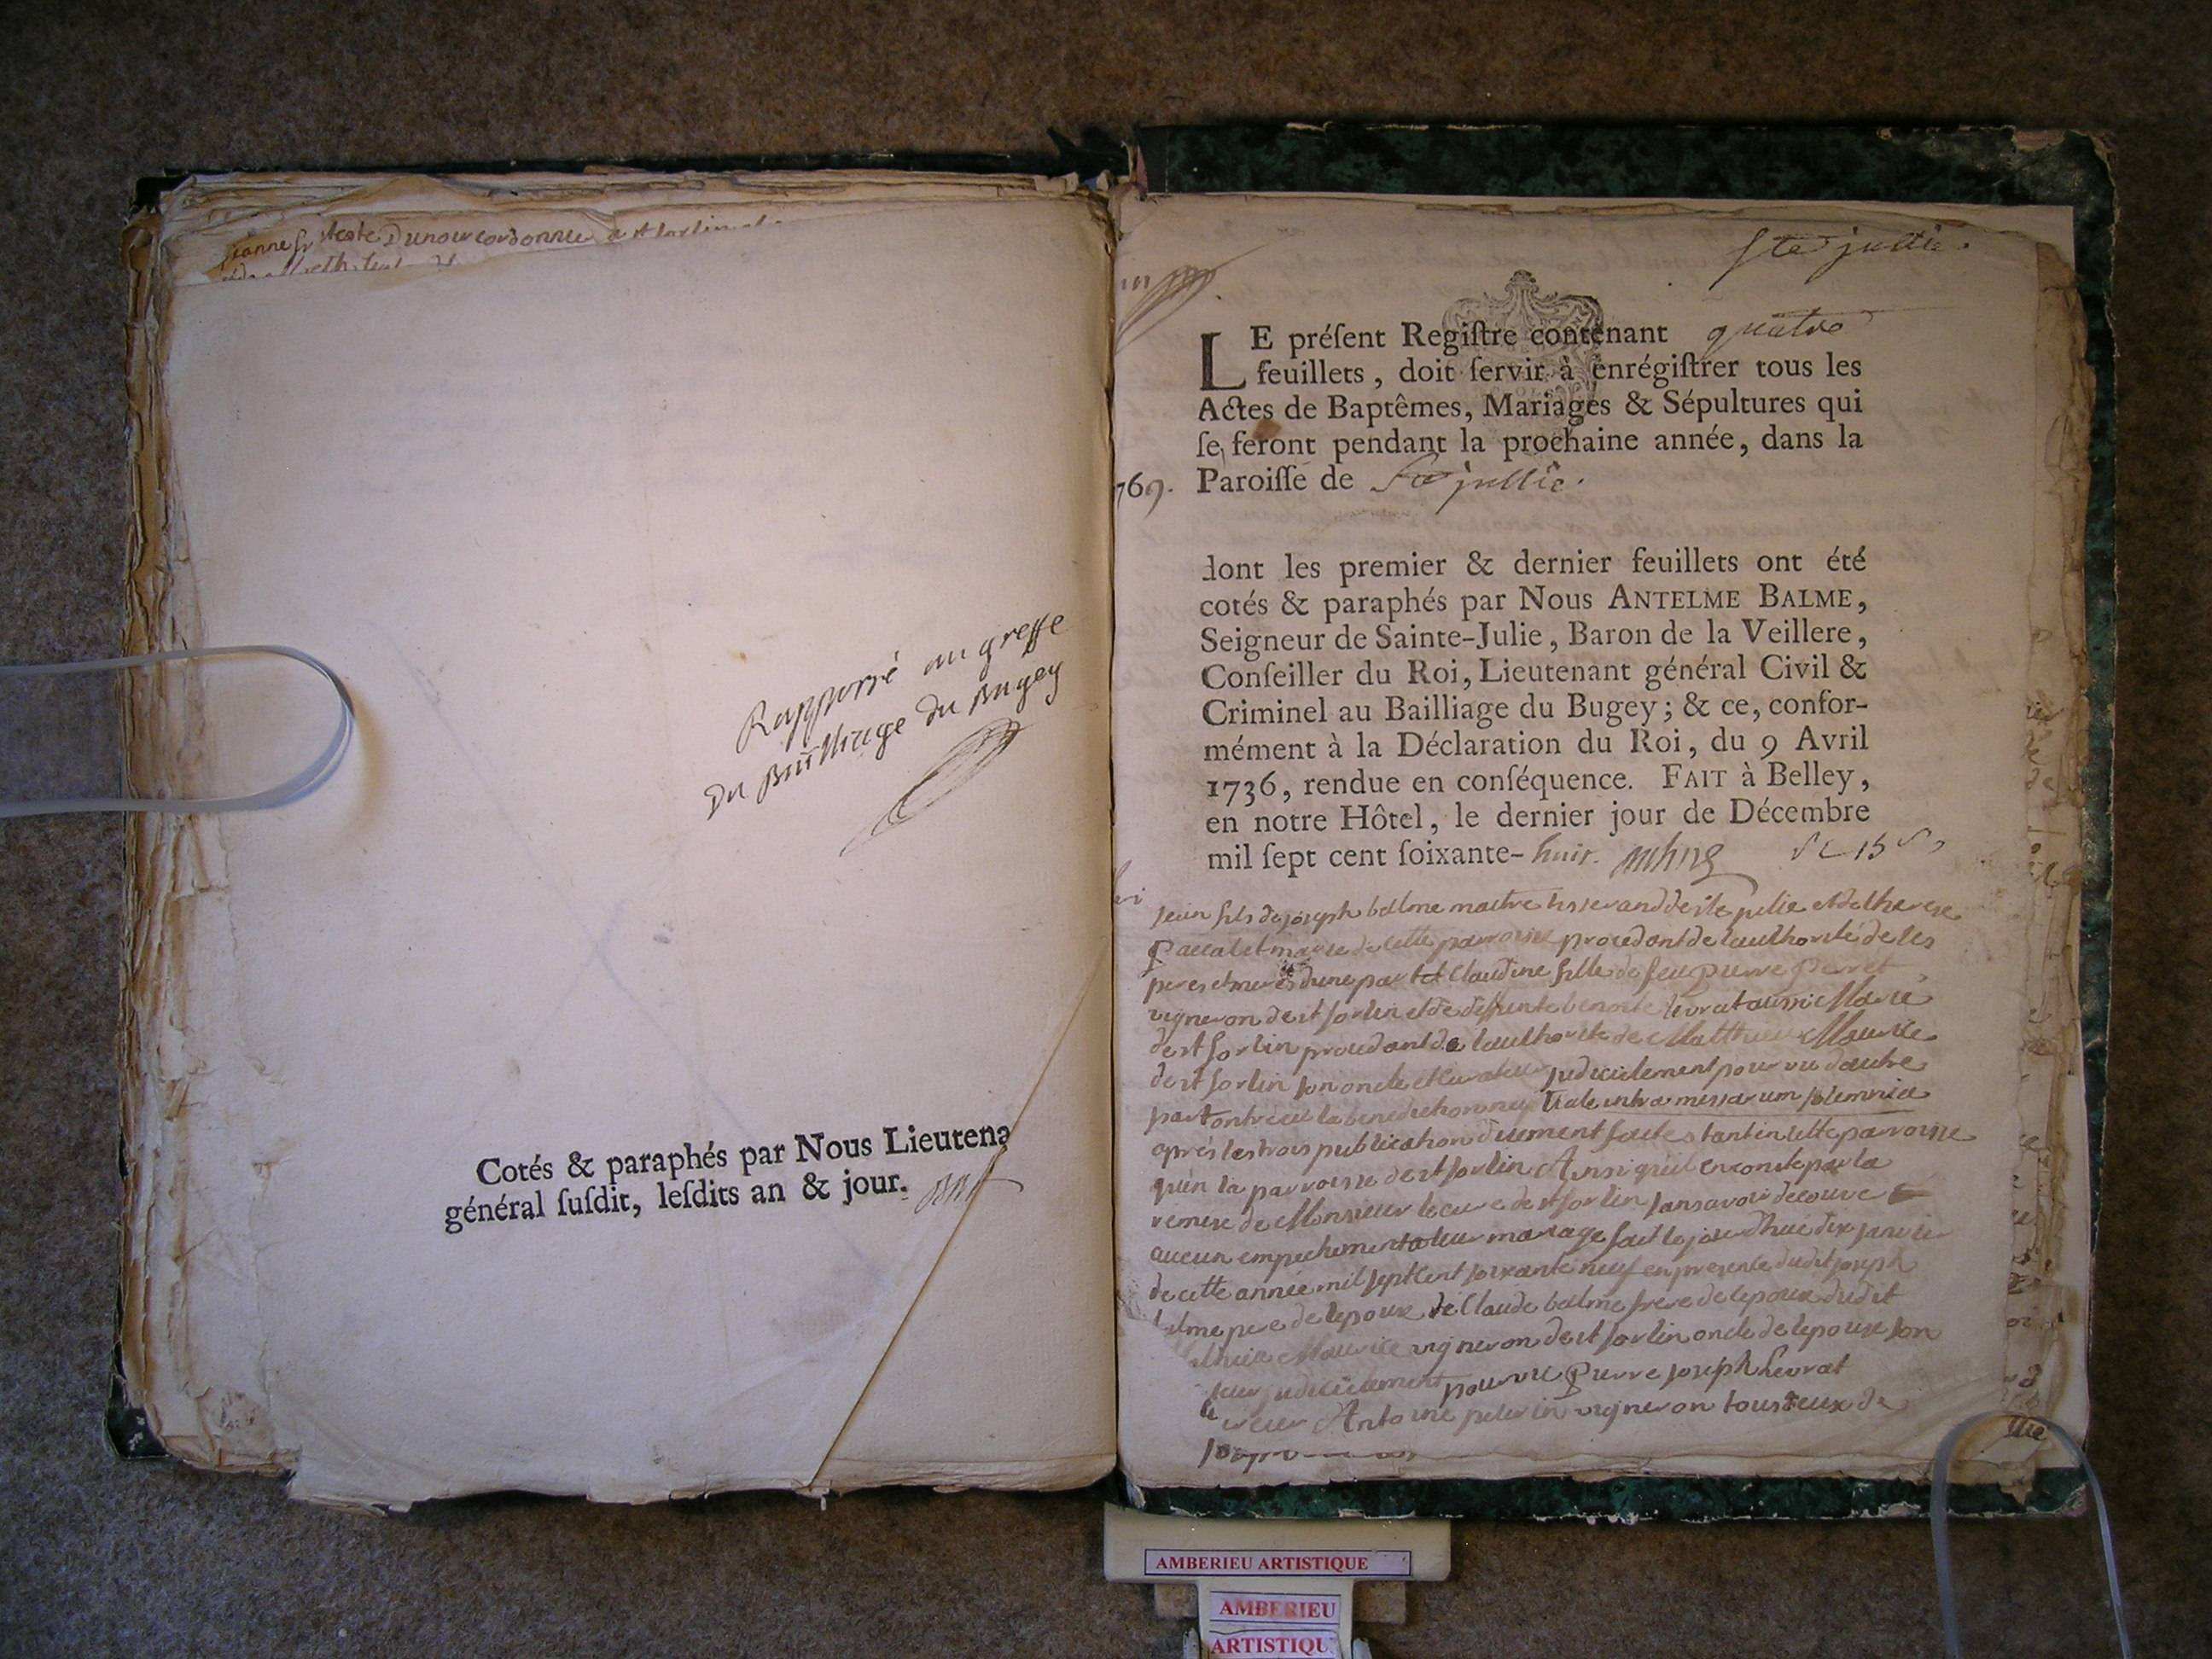 jeanne teste Dunour cordonnie a st sorlin
Rapporté au greffe
Du Bailliage du Bugey
Cotés & paraphés par Nous Lieutena
général ſuſdit, leſdits an & jour.
Ste jullie.
LE préſent Regiſtre contenant quatre
feuillets, doit ſervir à enrégiſtrer tous les
Actes de Baptêmes, Mariages & Sépultures qui
ſe feront pendant la prochaine année, dans la
769. Paroiſſe de Ste jullie.
dont les premier & dernier feuillets ont été
cotés & paraphés par Nous ANTELME BALME,
Seigneur de Sainte-Julie, Baron de la Veillere,
Conſeiller du Roi, Lieutenant général Civil &
Criminel au Bailliage du Bugey; & ce, confor-
mément à la Déclaration du Roi, du 9 Avril
1736, rendue en conſéquence. FAIT à Belley,
en notre Hôtel, le dernier jour de Décembre
mil ſept cent ſoixante- huit.
jean fils de joseph balme maitre tisserand de ste julie et de therese
marie de cette parroisse procedant de lauthorité de ses
peres et meres dune part et Claudine fille de feu pierre perret
vigneron de st sorlin et de deffunte benoite levrat aussi Marié
de st sorlin procedant de lauthorité de Matthieu Maurice
de st sorlin son oncle et curateur judicielement pourvu dautre
part ont reçu la benediction nuptiale intra missarum solemnia
après les trois publication duement faites tant en cette parroisse
quen la parroisse de st sorlin Ainsi quil en conste par la
remise de Monsieur le cure de st sorlin sans avoir decouve
aucun empechement a leur mariage fait le jourdhuy dix janvier
de cette année mil sept cent soixante neuf en presence dudit joseph
balme pere de lepoux de Claude balme frere de lepoux dudit
Maurice vigneron de st sorlin oncle de lepouse son
judicielement pourvu Pierre joseph Levrat
Antoine pelerin vigneron tous deux de
AMBERIEU ARTISTIQUE
AMBERIEU
ARTISTIQU